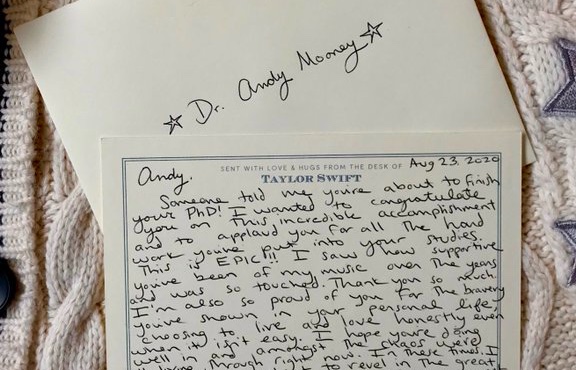 ☆ Dr. Andy Mooney ☆
SENT WITH LOVE & HUGS FROM THE DESK OF
TAYLOR SWIFT
Aug 23, 2020
Andy.
Someone told me you're about to finish
your PhD! I wanted to congratulate
you on this incredible accomplishment
and to applaud you for all the hard
work you've put into your studies.
This is EPIC!!! I saw how supportive
you've been of my music over the years
and was so touched. Thank you so much.
I'm also so proud of you for the bravery
you've shown in your personal life,
choosing to live and love honestly even
when it isn't easy. I hope you're doing
well in and amongst the chaos we're
living through right now. In these times, I
to revel in the great